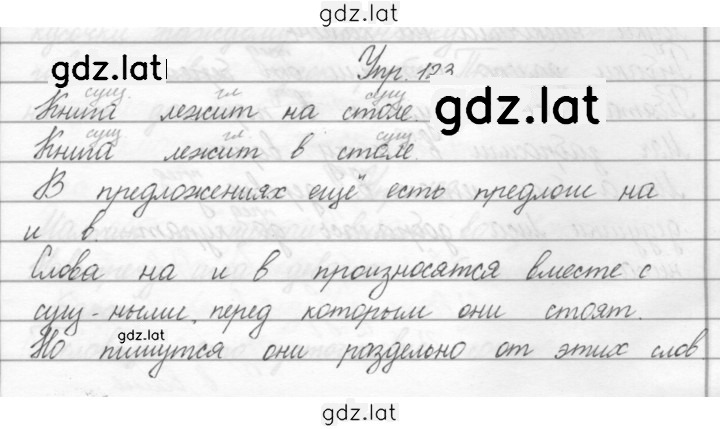 gdz.lat
Упр. 123
gdz.lat
сущ. гл. сущ.
Книга лежит на столе.
gdz.lat
сущ гл. сущ.
Книга лежит в столе.
В предложениях ещё есть предлоги на
и в.
Слова на и в произносятся вместе с
сущ-ными, перед которым они стоят.
gdz.lat
Но пишутся они раздельно от этих слов.
gdz.lat